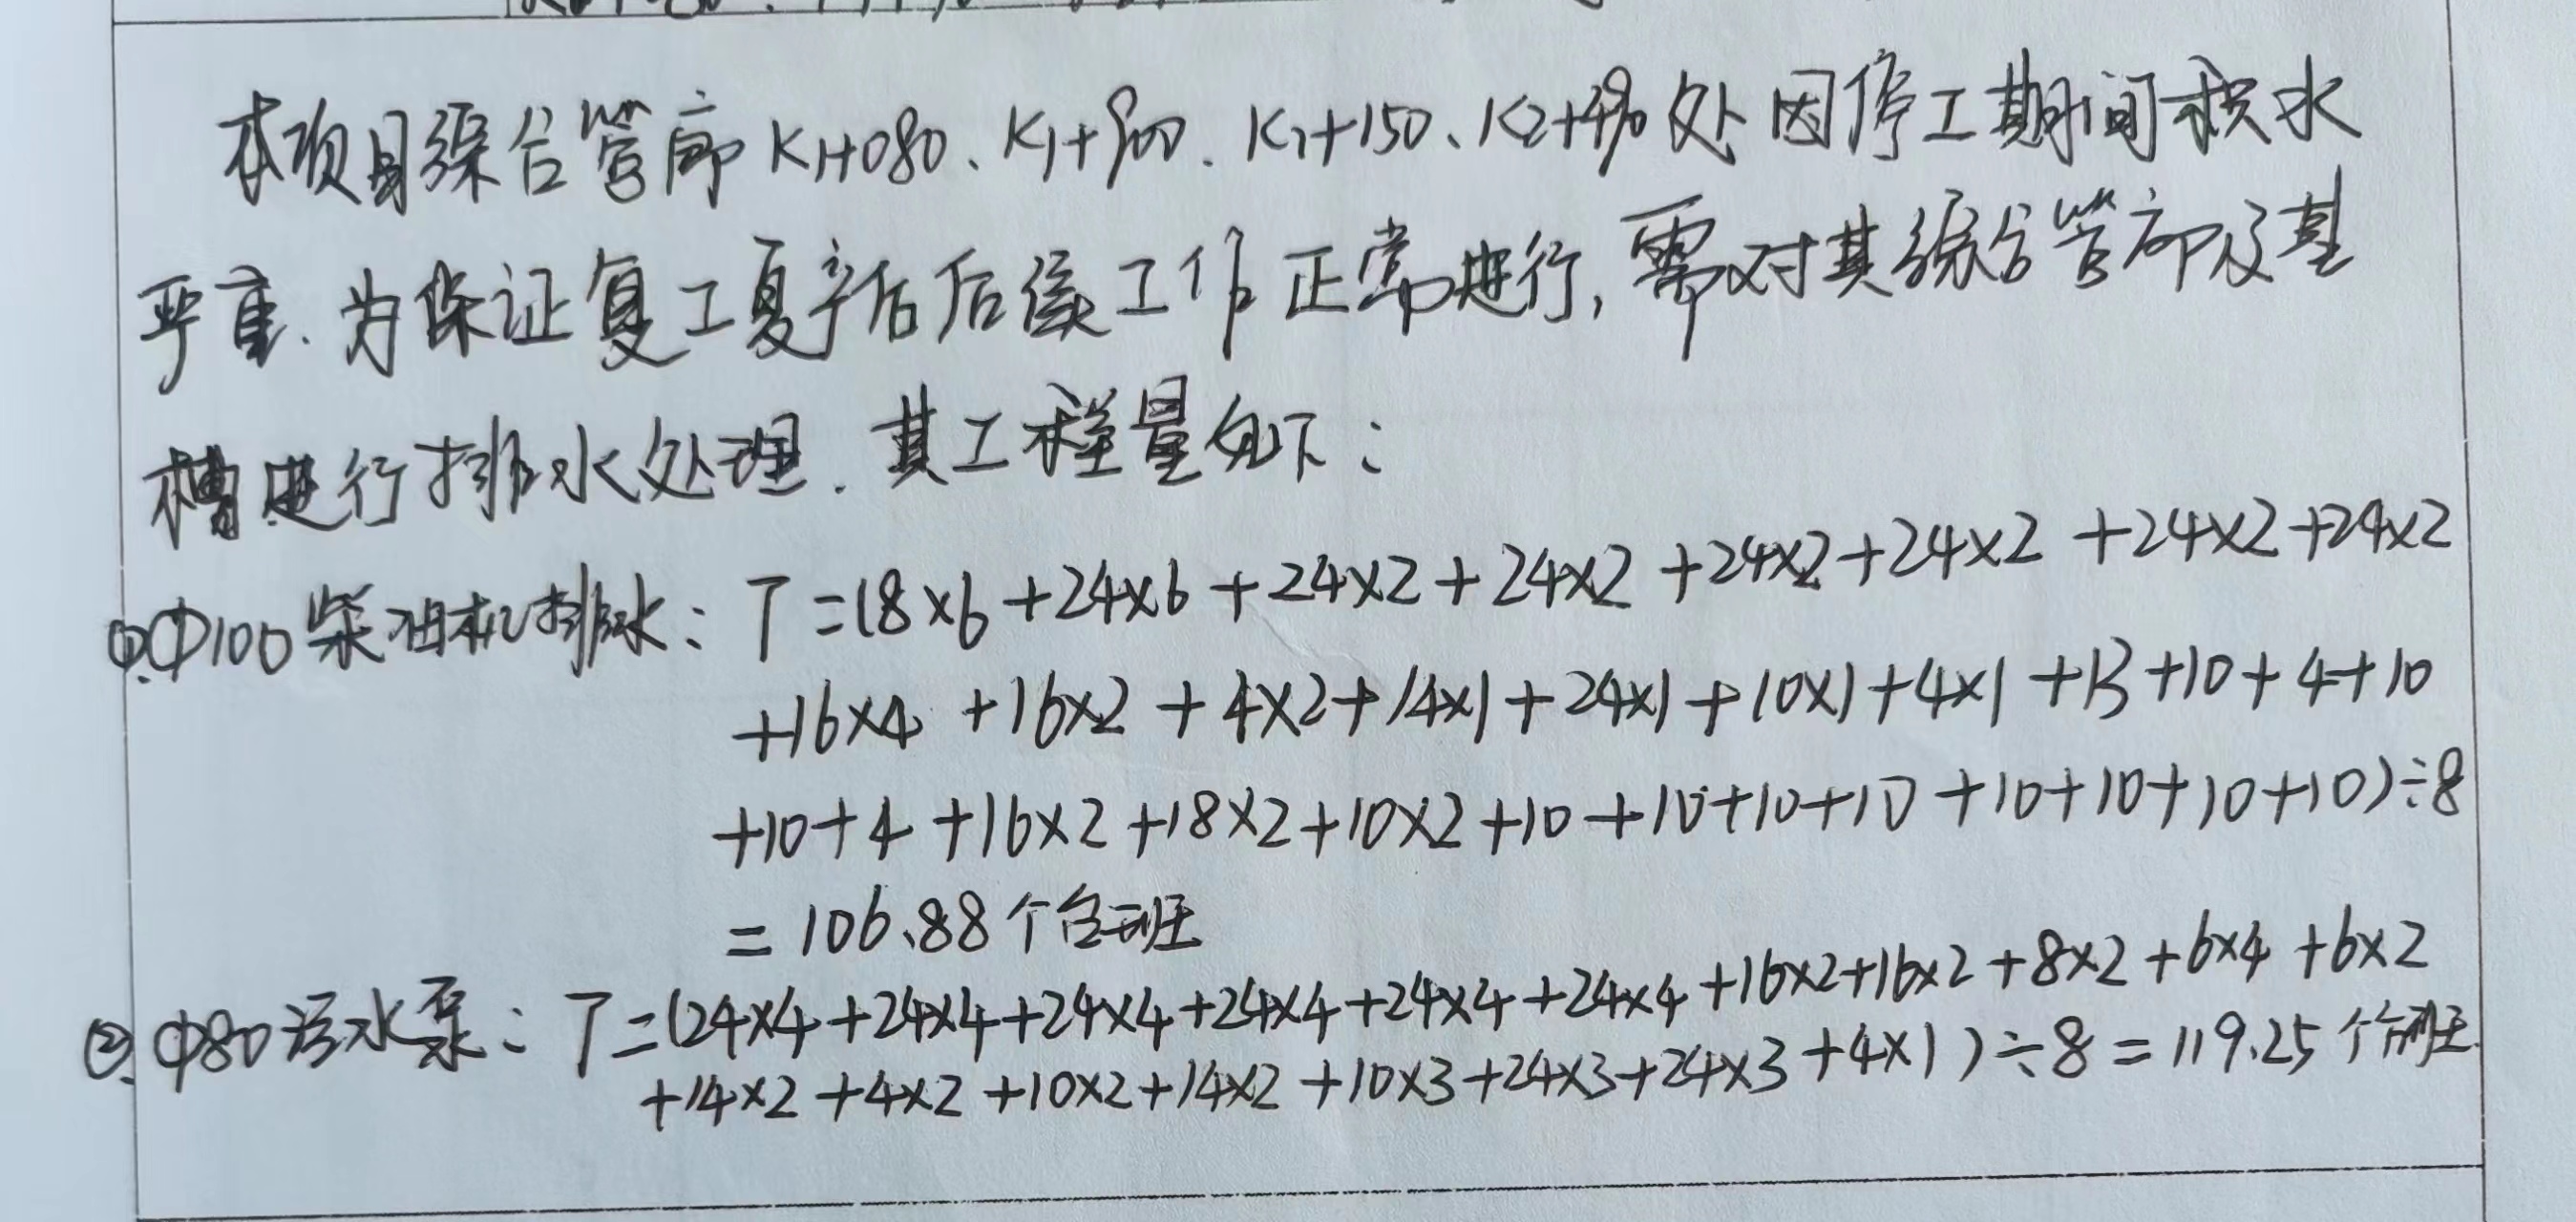 本项目综合管廊K1+080、K1+900、K1+150、K2+490处因停工期间积水
严重.为保证复工复产后后续工作正常进行,需对其综合管廊及基
槽进行排水处理.其工程量如下:
①.Φ100柴油机排水: T=(8×6+24×6+24×2+24×2+24×2+24×2+24×2+24×2
+16×4+16×2+4×2+14×1+24×1+10×1+4×1+13+10+4+10
+10+4+16×2+18×2+10×2+10+10+10+10+10+10+10+10)÷8
=106.88个台班
②.Φ80污水泵: T=(24×4+24×4+24×4+24×4+24×4+24×4+16×2+16×2+8×2+6×4+6×2
+14×2+4×2+10×2+14×2+10×3+24×3+24×3+4×1)÷8=119.25个台班